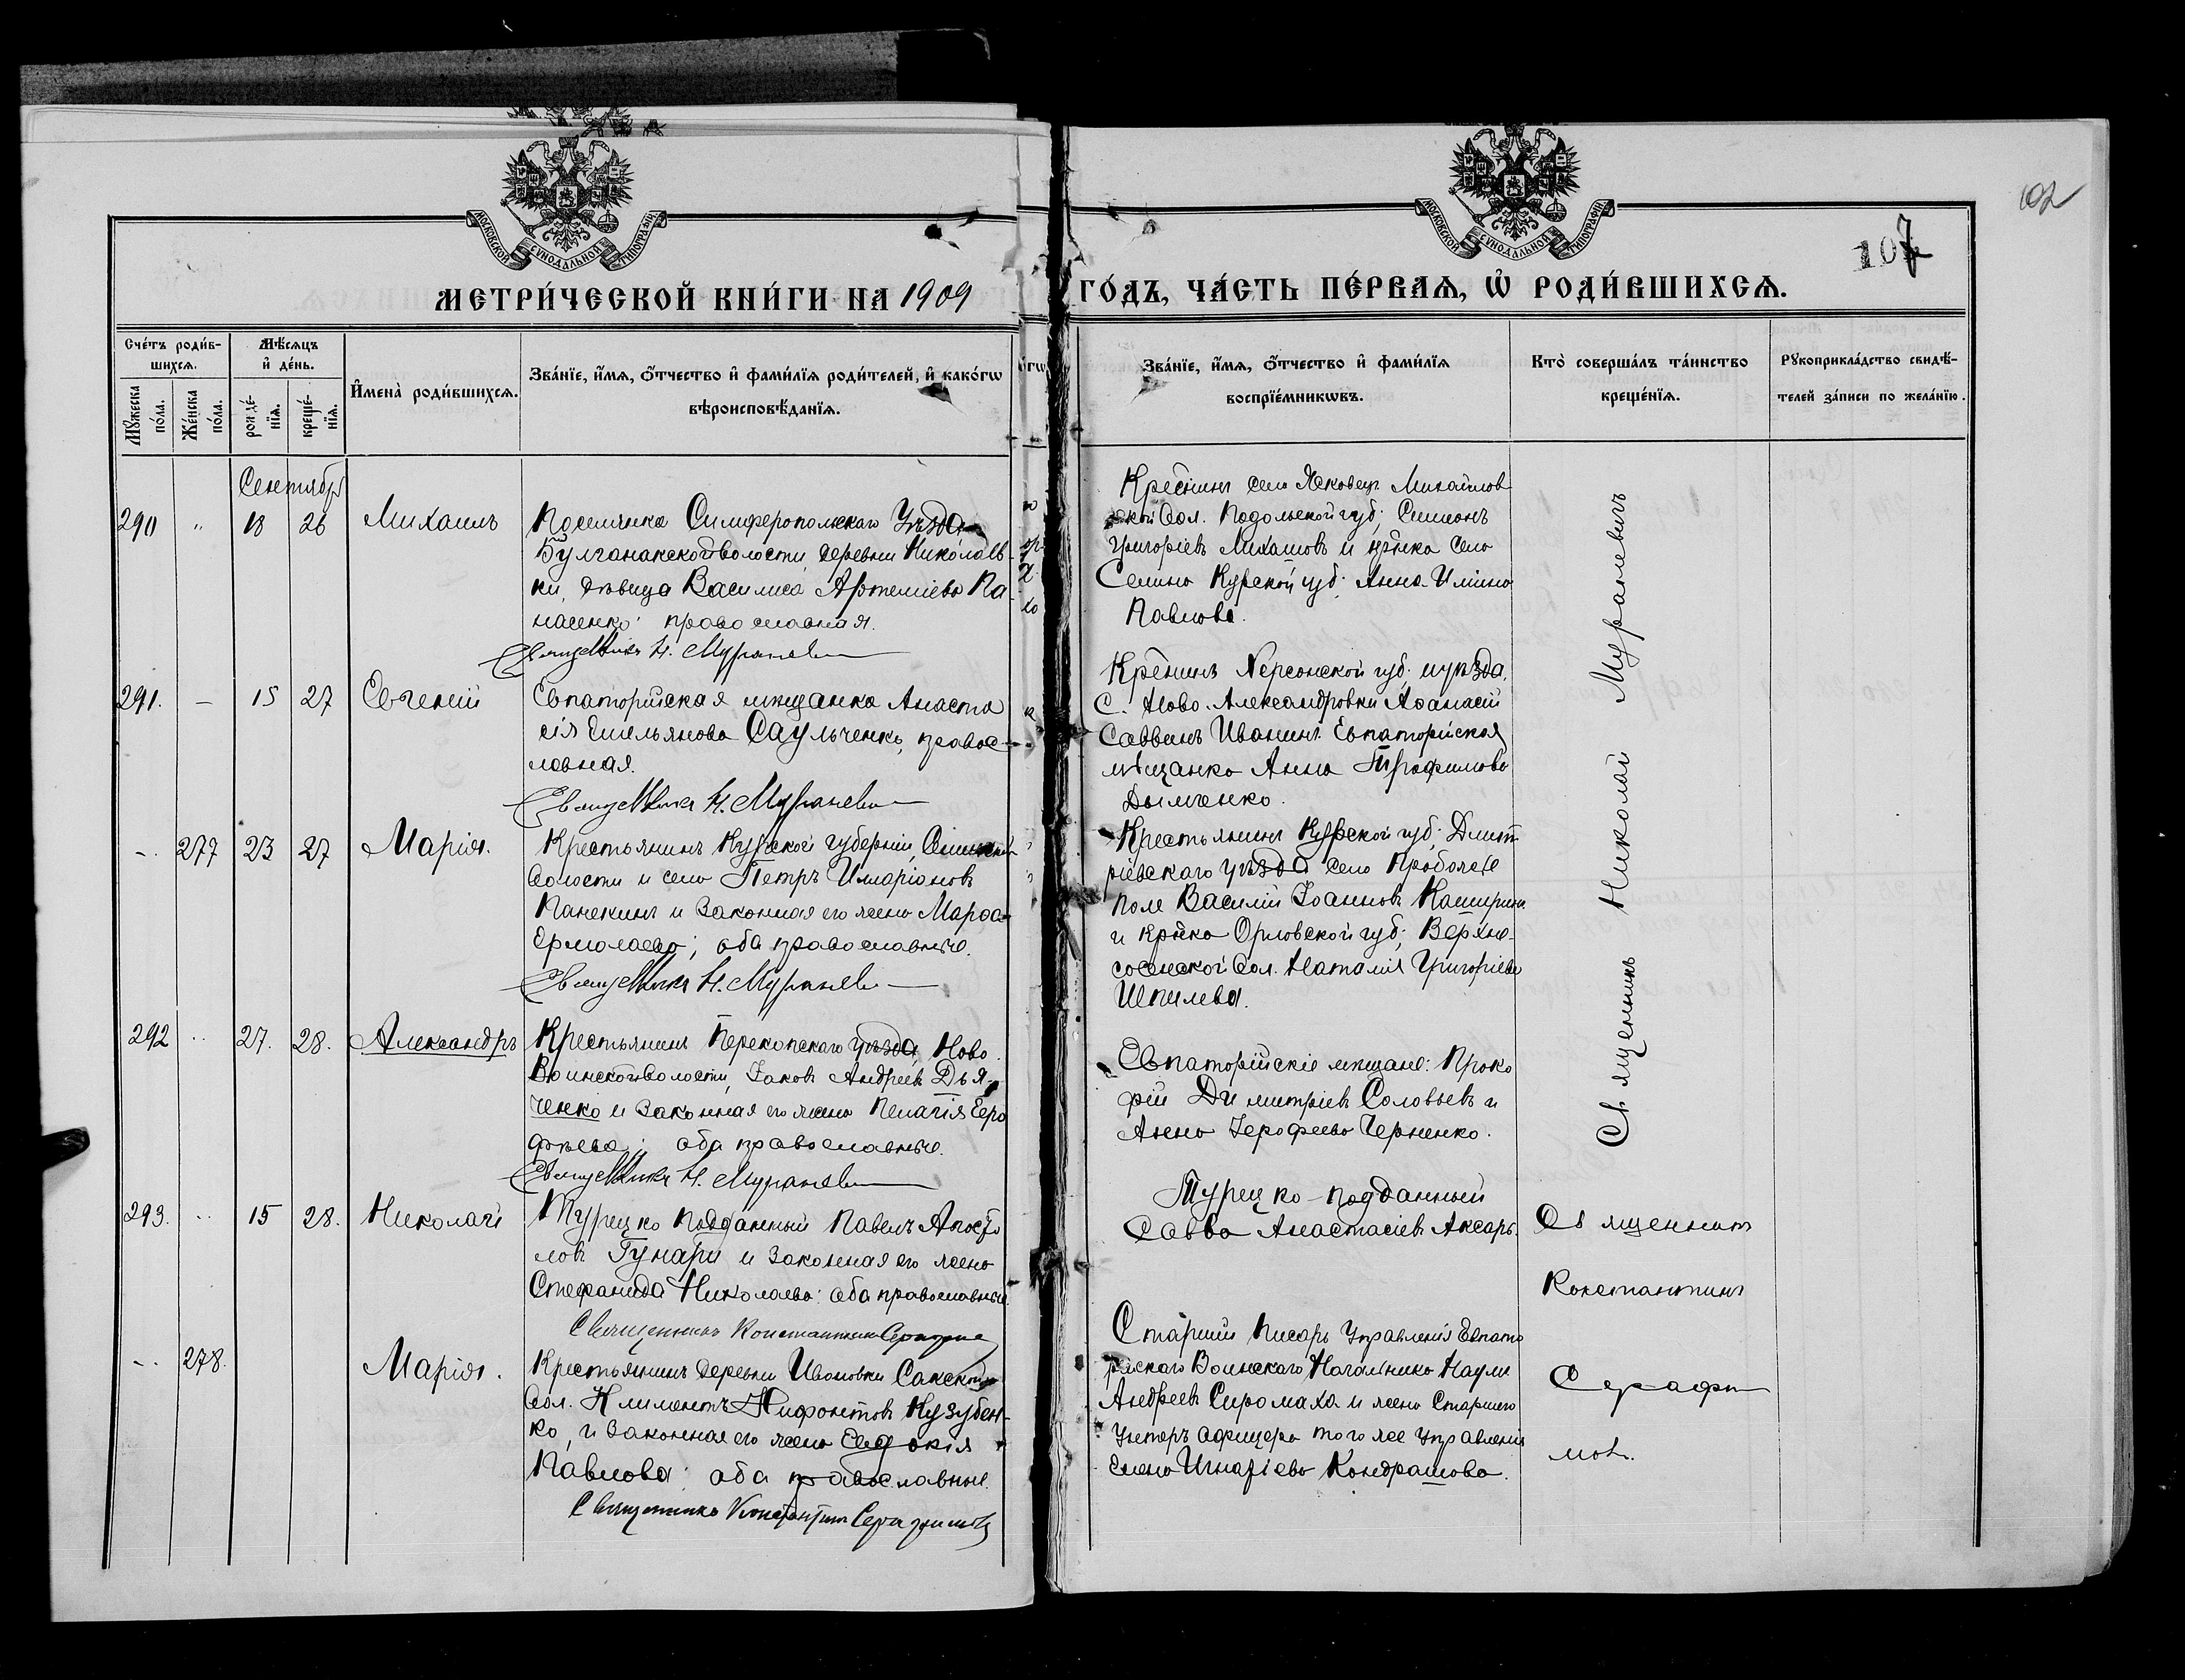 102
107
МОСКОВСКОЙ СѴНОДАЛЬНОЙ ТИПОГРАФІИ
МОСКОВСКОЙ СѴНОДАЛЬНОЙ ТИПОГРАФІИ
МЕТРИ́ЧЕСКОЙ КНИ́ГИ НА 1909
ГО́ДЪ, ЧА́СТЬ ПЕ́РВАѦ, Ѡ҆ РОДИ́ВШИХСѦ.
Сче́тъ роди́в-
шихсѧ.
Мꙋжеска
по́ла.
Же́нска
по́ла.
Мѣ́сѧцъ
и҆ де́нь.
рожде́-
нїѧ.
креще́-
нїѧ.
И҆мена̀ роди́вшихсѧ.
Зва́нїе, и҆́мѧ, ѻ҆́тчество и҆ фами́лїѧ роди́телей, и҆ како́гѡ
вѣроисповѣ́данїѧ.
Зва́нїе, и҆́мѧ, ѻ҆́тчество и҆ фами́лїѧ
воспрїе́мникѡвъ.
Кто̀ соверша́лъ та́инство
креще́нїѧ.
Рꙋкоприкла́дство свидѣ́-
телей за́писи по жела́нїю.
Сентябрь
290 " 18 26 Михаилъ
Поселянка Симферопольскаго Уѣзда
Булганакской волости, деревни Николаев-
ки, дѣвица Василиса Артеміева Па-
насенко; православная.
Священникъ Н. Мураневичъ
Кресннъ села Михайлов
ской вол. Подольской губ; Симеонъ
Григоріевъ и кр̃нка села
Семина Курской губ; Анна Ильина
Павлова.
291. – 15 27 Евгеній
Евпаторійская мѣщанка Анаста
сія Емельянова Саульченко, правос-
лавная.
Священникъ Н. Мураневичъ
Кре̃нинъ Херсонской губ. и уѣзда,
с. Ново-Александровки Аѳанасій
Саввинъ Иванинъ. Евпаторійская
мѣщанка Анна Трофимова
Дымченко.
-. 277 23 27 Марія.
Крестьянинъ Курской губерніи,
волости и села Петръ Иларіоновъ
Панекинъ и законная его жена Марѳа
Ермолаева; оба православные.
Священникъ Н. Мураневичъ
Крестьянинъ Курской губ; Дмит
ріевскаго уѣзда села
поле Василій Іоанновъ Каширинъ
и кр̃нка Орловской губ; Верхне-
сосенской вол. Наталія Григоріева
Шпилева.
292 .. 27. 28. Александръ
Крестьянинъ Перекопскаго уѣзда, Ново
Воинской волости, Іаковъ Андреевъ Дья-
ченко и законная его жена Пелагія Еро
фѣева; оба православные.
Священникъ Н. Мураневичъ
Евпаторійскіе мѣщане: Проко
фій Димитріевъ Соловьевъ и
Анна Іерофеева Черненко.
Священникъ Николай Мураневичъ
293. .. 15 28. Николай
Турецко подданный Павелъ Апосто
ловъ Гунари и законная его жена
Стефанида Николаева; оба православные.
Священникъ Константинъ Серафимовъ
Турецко-подданный
Савва Анастасіевъ Аксаръ.
Священникъ
Константинъ
Серафи
мовъ.
-. 278. Марія.
Крестьянинъ деревни Ивановки Сакской
вол. Климентъ Нифонтовъ Кузубен-
ко, и законная его жена Евдокія
Павлова; оба православные.
Священникъ Константинъ Серафимовъ
Старшій Писарь Управленія Евпато
рійскаго Воинскаго Начальника Наумъ
Андреевъ Сиромаха и жена Старшаго
Унтеръ офицера того же Управленія
Елена Игнатіева Кондрашова.